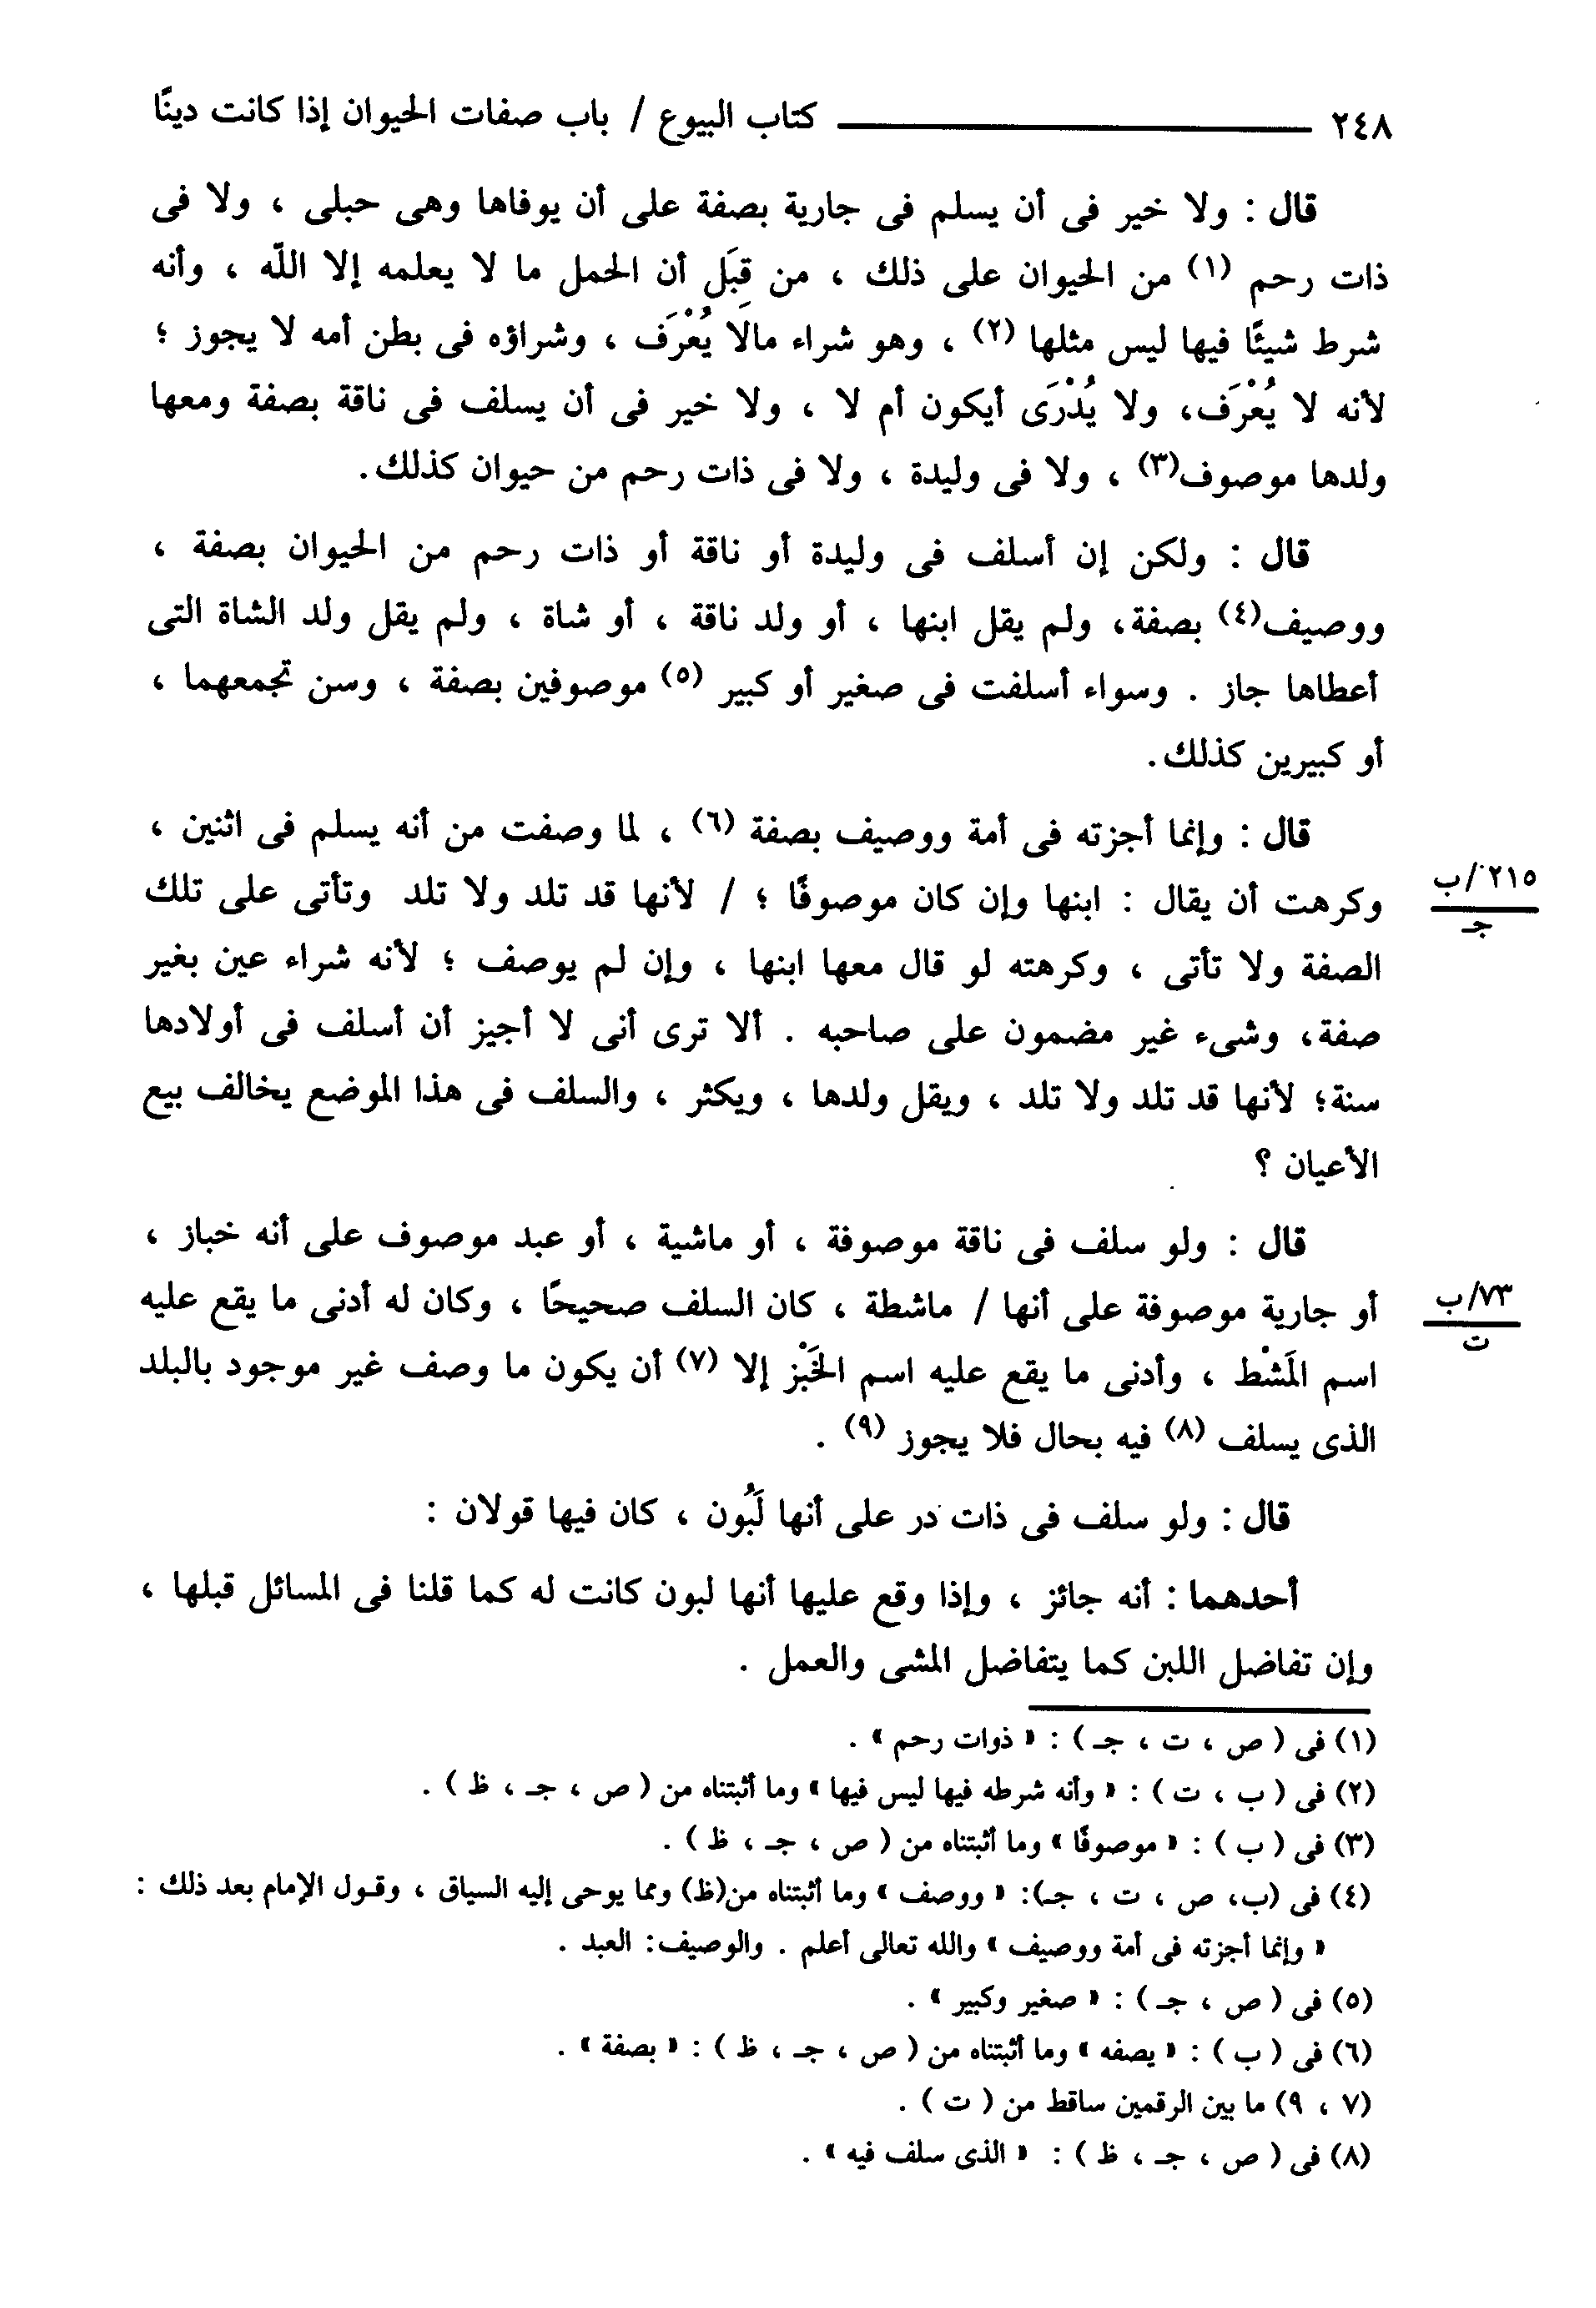 ٢٤٨ كتاب البيوع / باب صفات الحيوان إذا كانت دينًا
قال : ولا خير فى أن يسلم فى جارية بصفة على أن يوفاها وهى حبلى ، ولا فى
ذات رحم (١) من الحيوان على ذلك ، من قِبَل أن الحمل ما لا يعلمه إلا اللّه ، وأنه
شرط شيئًا فيها ليس مثلها (٢) ، وهو شراء مالا يُعْرَف ، وشراؤه فى بطن أمه لا يجوز ؛
لأنه لا يُعْرَف، ولا يُدْرَى أيكون أم لا ، ولا خير فى أن يسلف فى ناقة بصفة ومعها
ولدها موصوف(٣) ، ولا فى وليدة ، ولا فى ذات رحم من حيوان كذلك.
قال : ولكن إن أسلف فى وليدة أو ناقة أو ذات رحم من الحيوان بصفة ،
ووصيف(٤) بصفة، ولم يقل ابنها ، أو ولد ناقة ، أو شاة ، ولم يقل ولد الشاة التى
أعطاها جاز . وسواء أسلفت فى صغير أو كبير (٥) موصوفين بصفة ، وسن تجمعهما ،
أو كبيرين كذلك.
قال : وإنما أجزته فى أمة ووصيف بصفة (٦) ، لما وصفت من أنه يسلم فى اثنين ،
وكرهت أن يقال : ابنها وإن كان موصوفًا ؛ / لأنها قد تلد ولا تلد وتأتى على تلك
٢١٥/ب
جـ
الصفة ولا تأتى ، وكرهته لو قال معها ابنها ، وإن لم يوصف ؛ لأنه شراء عين بغير
صفة، وشىء غير مضمون على صاحبه . ألا ترى أنى لا أجيز أن أسلف فى أولادها
سنة؛ لأنها قد تلد ولا تلد ، ويقل ولدها ، ويكثر ، والسلف فى هذا الموضع يخالف بيع
الأعيان ؟
قال : ولو سلف فى ناقة موصوفة ، أو ماشية ، أو عبد موصوف على أنه خباز ،
أو جارية موصوفة على أنها / ماشطة ، كان السلف صحيحًا ، وكان له أدنى ما يقع عليه
٧٣/ب
ت
اسم المَشْط ، وأدنى ما يقع عليه اسم الخَبْز إلا (٧) أن يكون ما وصف غير موجود بالبلد
الذى يسلف (٨) فيه بحال فلا يجوز (٩) .
قال : ولو سلف فى ذات در على أنها لَبُون ، كان فيها قولان :
أحدهما : أنه جائز ، وإذا وقع عليها أنها لبون كانت له كما قلنا فى المسائل قبلها ،
وإن تفاضل اللبن كما يتفاضل المشى والعمل .
(١) فى ( ص ، ت ، جـ ) : « ذوات رحم » .
(٢) فى ( ب ، ت ) : « وأنه شرطه فيها ليس فيها » وما أثبتناه من ( ص ، جـ ، ظ ) .
(٣) فى ( ب ) : « موصوفًا » وما أثبتناه من ( ص ، جـ ، ظ ) .
(٤) فى (ب، ص ، ت ، جـ): « ووصف » وما أثبتناه من(ظ) ومما يوحى إليه السياق ، وقول الإمام بعد ذلك :
« وإنما أجزته فى أمة ووصيف » والله تعالى أعلم . والوصيف: العبد .
(٥) فى ( ص ، جـ ) : « صغير وكبير » .
(٦) فى ( ب ) : « يصفه » وما أثبتناه من ( ص ، جـ ، ظ ) : « بصفة » .
(٧ ، ٩) ما بين الرقمين ساقط من ( ت ) .
(٨) فى ( ص ، جـ ، ظ ) : « الذى سلف فيه » .